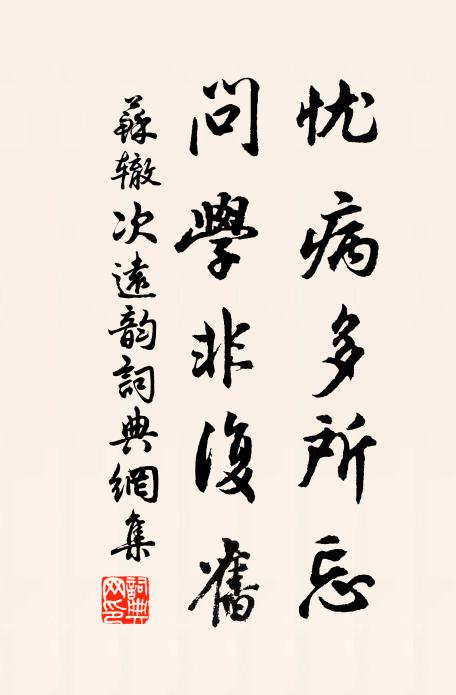 忧病多所忘
問學非復舊
蘇辙次遠韵詞典網集
詞典网印